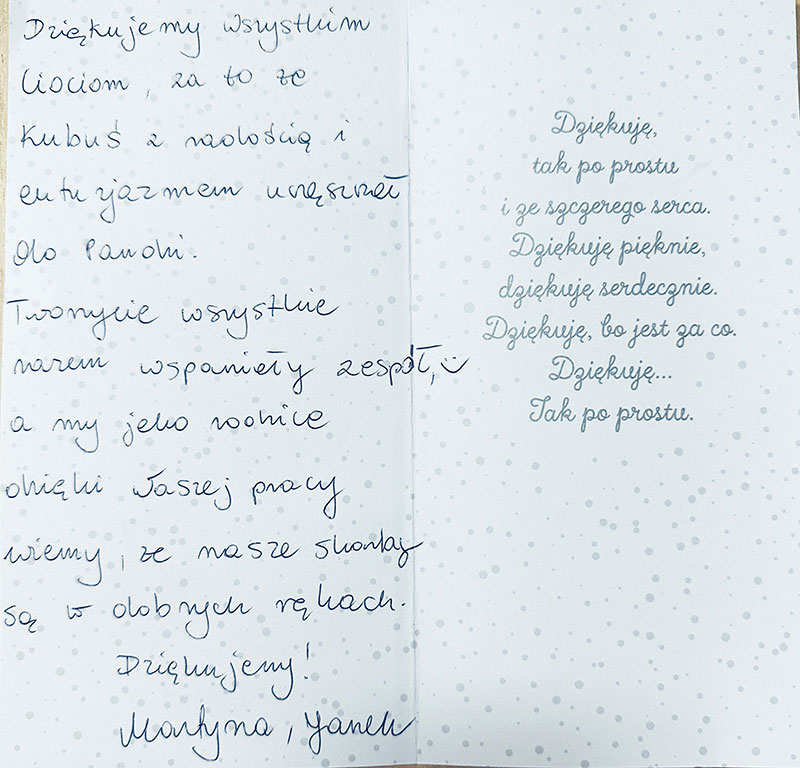 Dziękujemy wszystkim
Ciociom, za to że
Kubuś z radością i
entuzjazmem uczęszczał
do Pandki.
Tworzycie wszystkie
razem wspaniały zespół, :)
a my jako rodzice
dzięki Waszej pracy
wiemy, że nasze skarby
są w dobrych rękach.
Dziękujemy!
Martyna, Janek
Dziękuję,
tak po prostu
i ze szczerego serca.
Dziękuję pięknie,
dziękuję serdecznie.
Dziękuję, bo jest za co.
Dziękuję...
Tak po prostu.